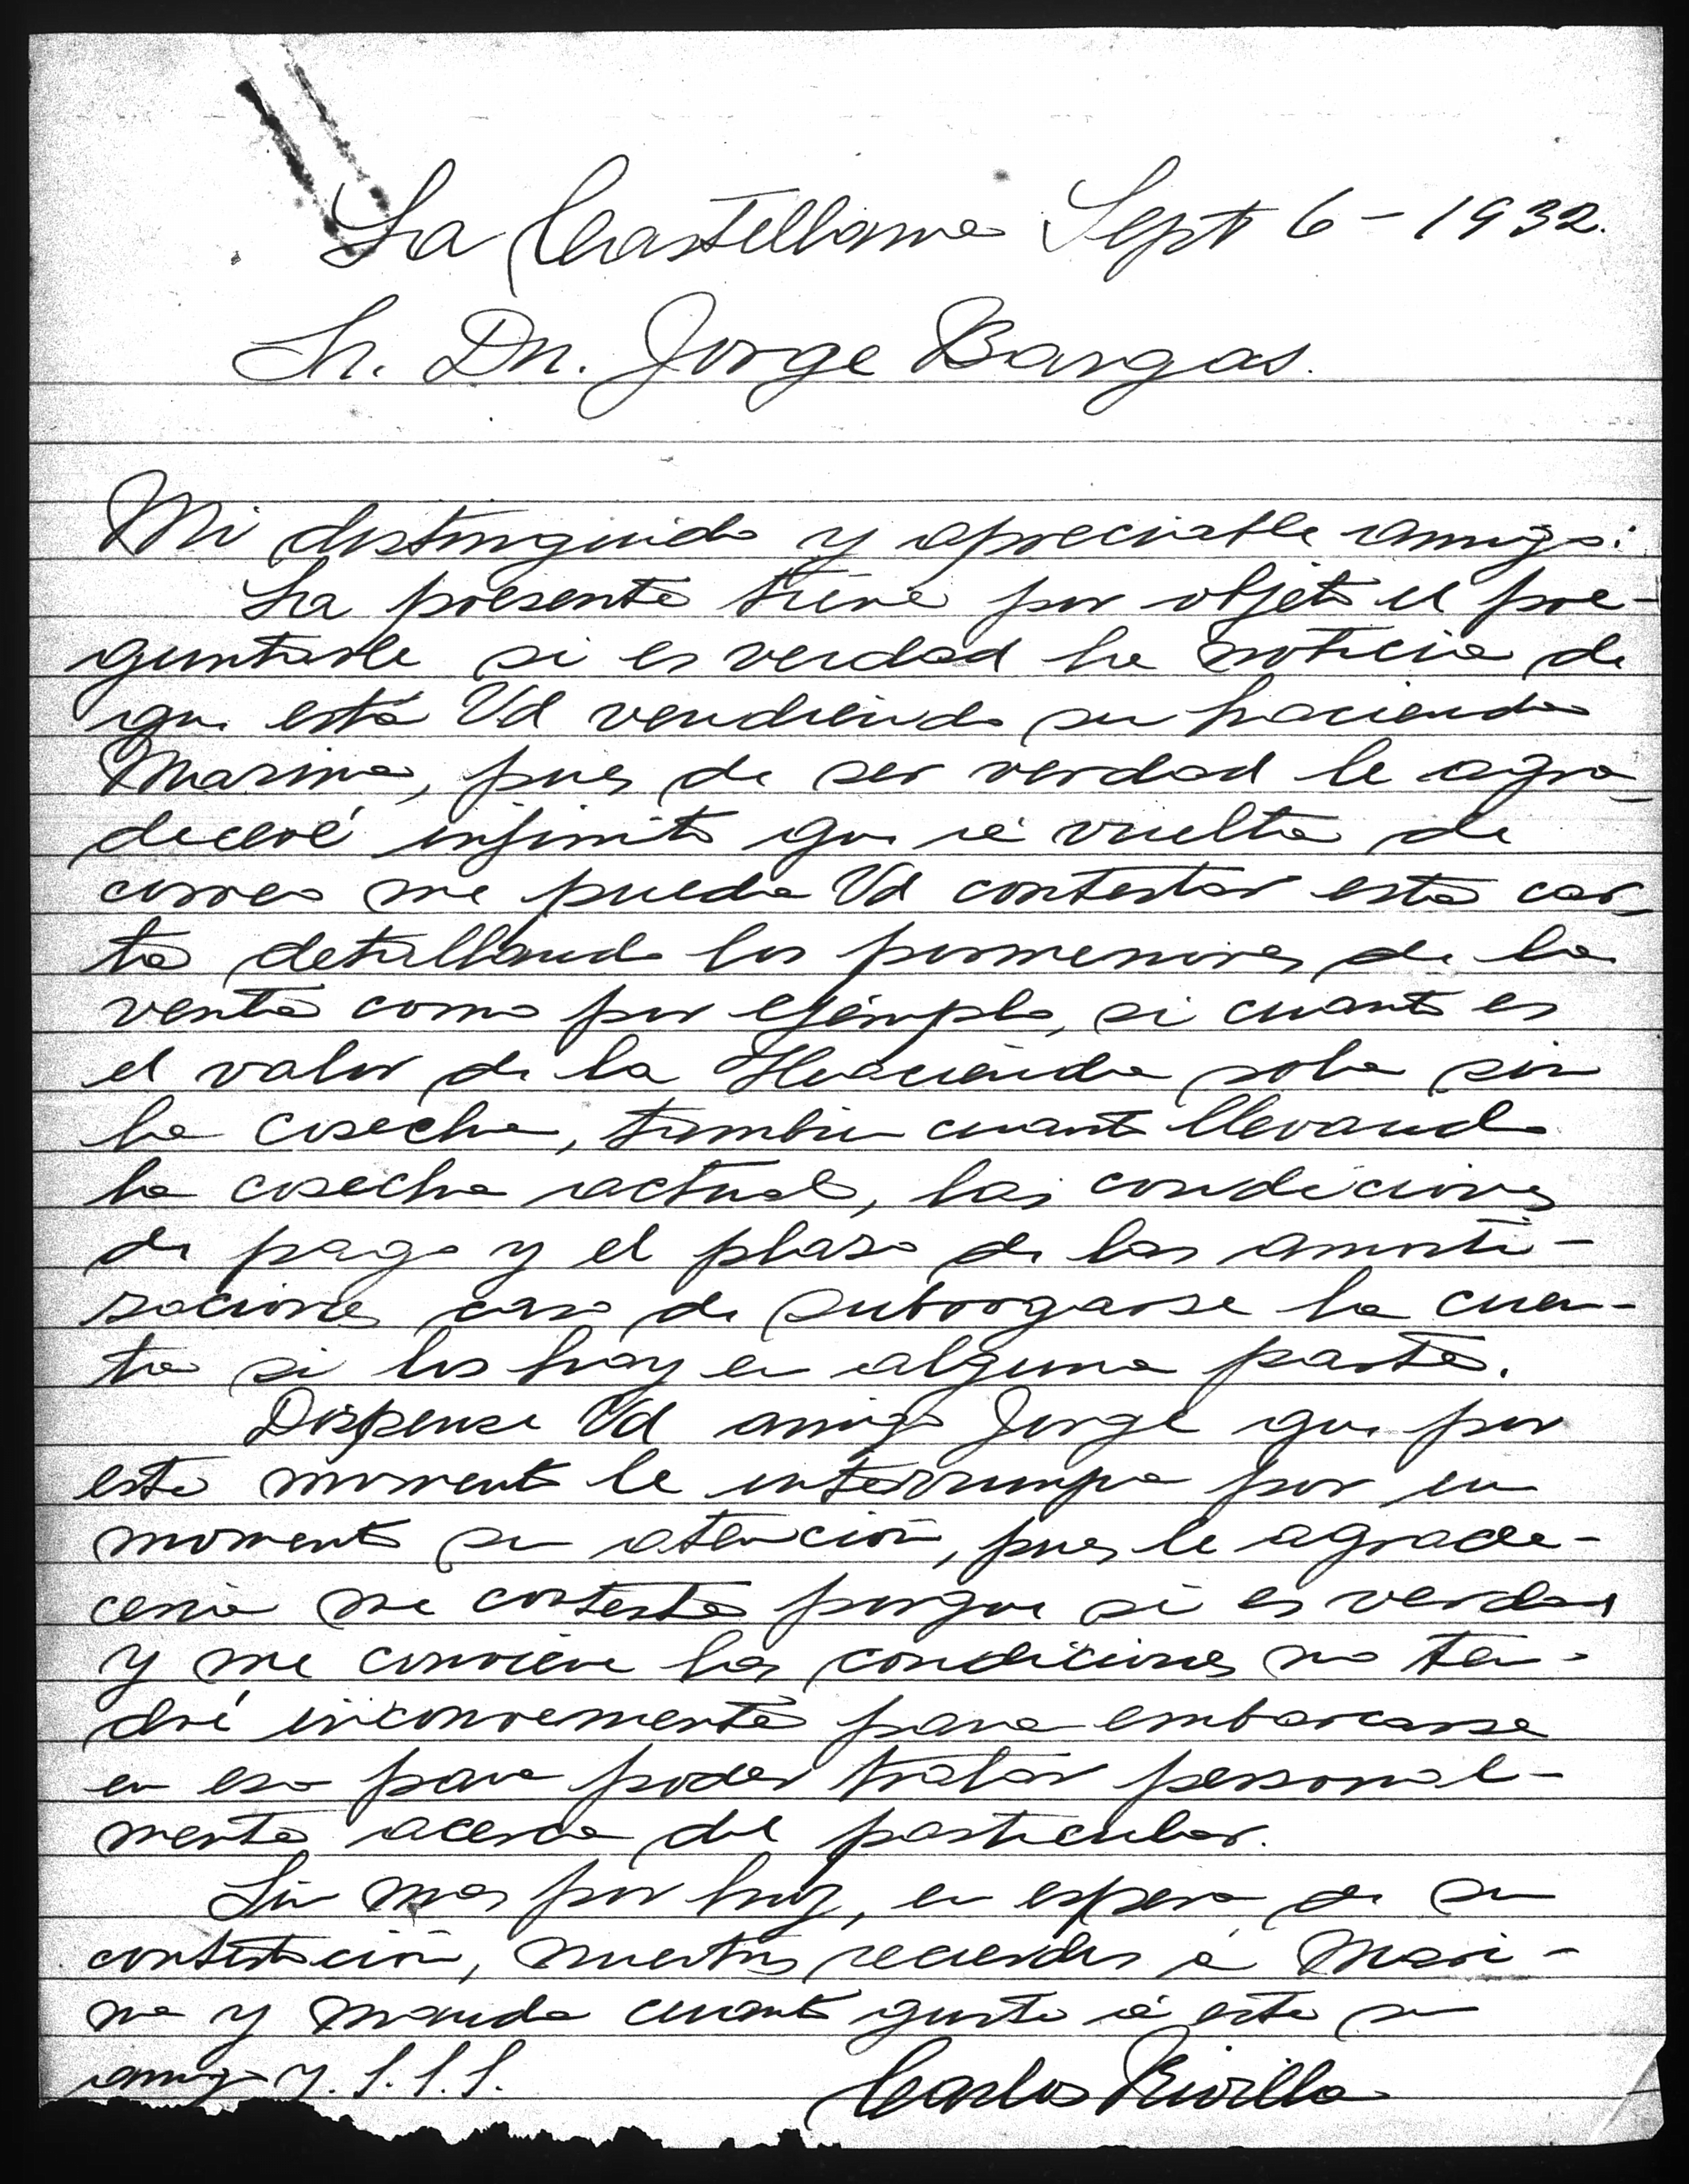 La Castellana Sept 6 - 1932.
Sr. Dn. Jorge Bargas.
Mi distinguido y apreciable amigo:
La presente tiene por objeto el pre-
guntarle si es verdad la noticia de
que está Vd vendiendo su hacienda
Marina, pues de ser verdad le agra-
deceré infinito que á vuelta de
correo me pueda Vd contestar esta car-
ta detallando los pormenores de la
venta como por ejemplo, si cuanto es
el valor de la Hacienda sola sin
la cosecha, tambien cuanto llevando
la cosecha actual, las condiciones
de pago y el plaso de las amorti-
saciones caso de subrogarse la cuen-
ta si los hay en alguna parte.
Dispense Vd amigo Jorge que por
este momento le interrumpa por un
momento su atención, pues le agrade-
ceria me conteste porque si es verdad
y me conviene las condiciones no ten-
dré inconveniente para embarcarse
en esa para poder tratar personal-
mente acerca del particular.
Sin mas por hoy, en espera de su
contestación, nuestros recuerdos á Mari-
na y mande cuanto guste á este su
amigo y. S. S. S.
Carlos